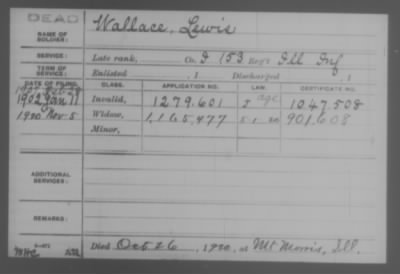 DEAD
NAME OF SOLDIER: Wallace, Lewis
SERVICE: Late rank, Co. I 153 Reg't Ill Inf
TERM OF SERVICE: Enlisted , 1 Discharged , 1
DATE OF FILING. CLASS. APPLICATION NO. LAW. CERTIFICATE NO.
1902 Jan 11 Invalid, 1279.601 age 1047.508
1920 Nov. 5 Widow, 1,165,977 5 1 20 901608
Minor,
ADDITIONAL SERVICES:
REMARKS:
Died Oct 26, 1920, at Mt Morris, Ill.